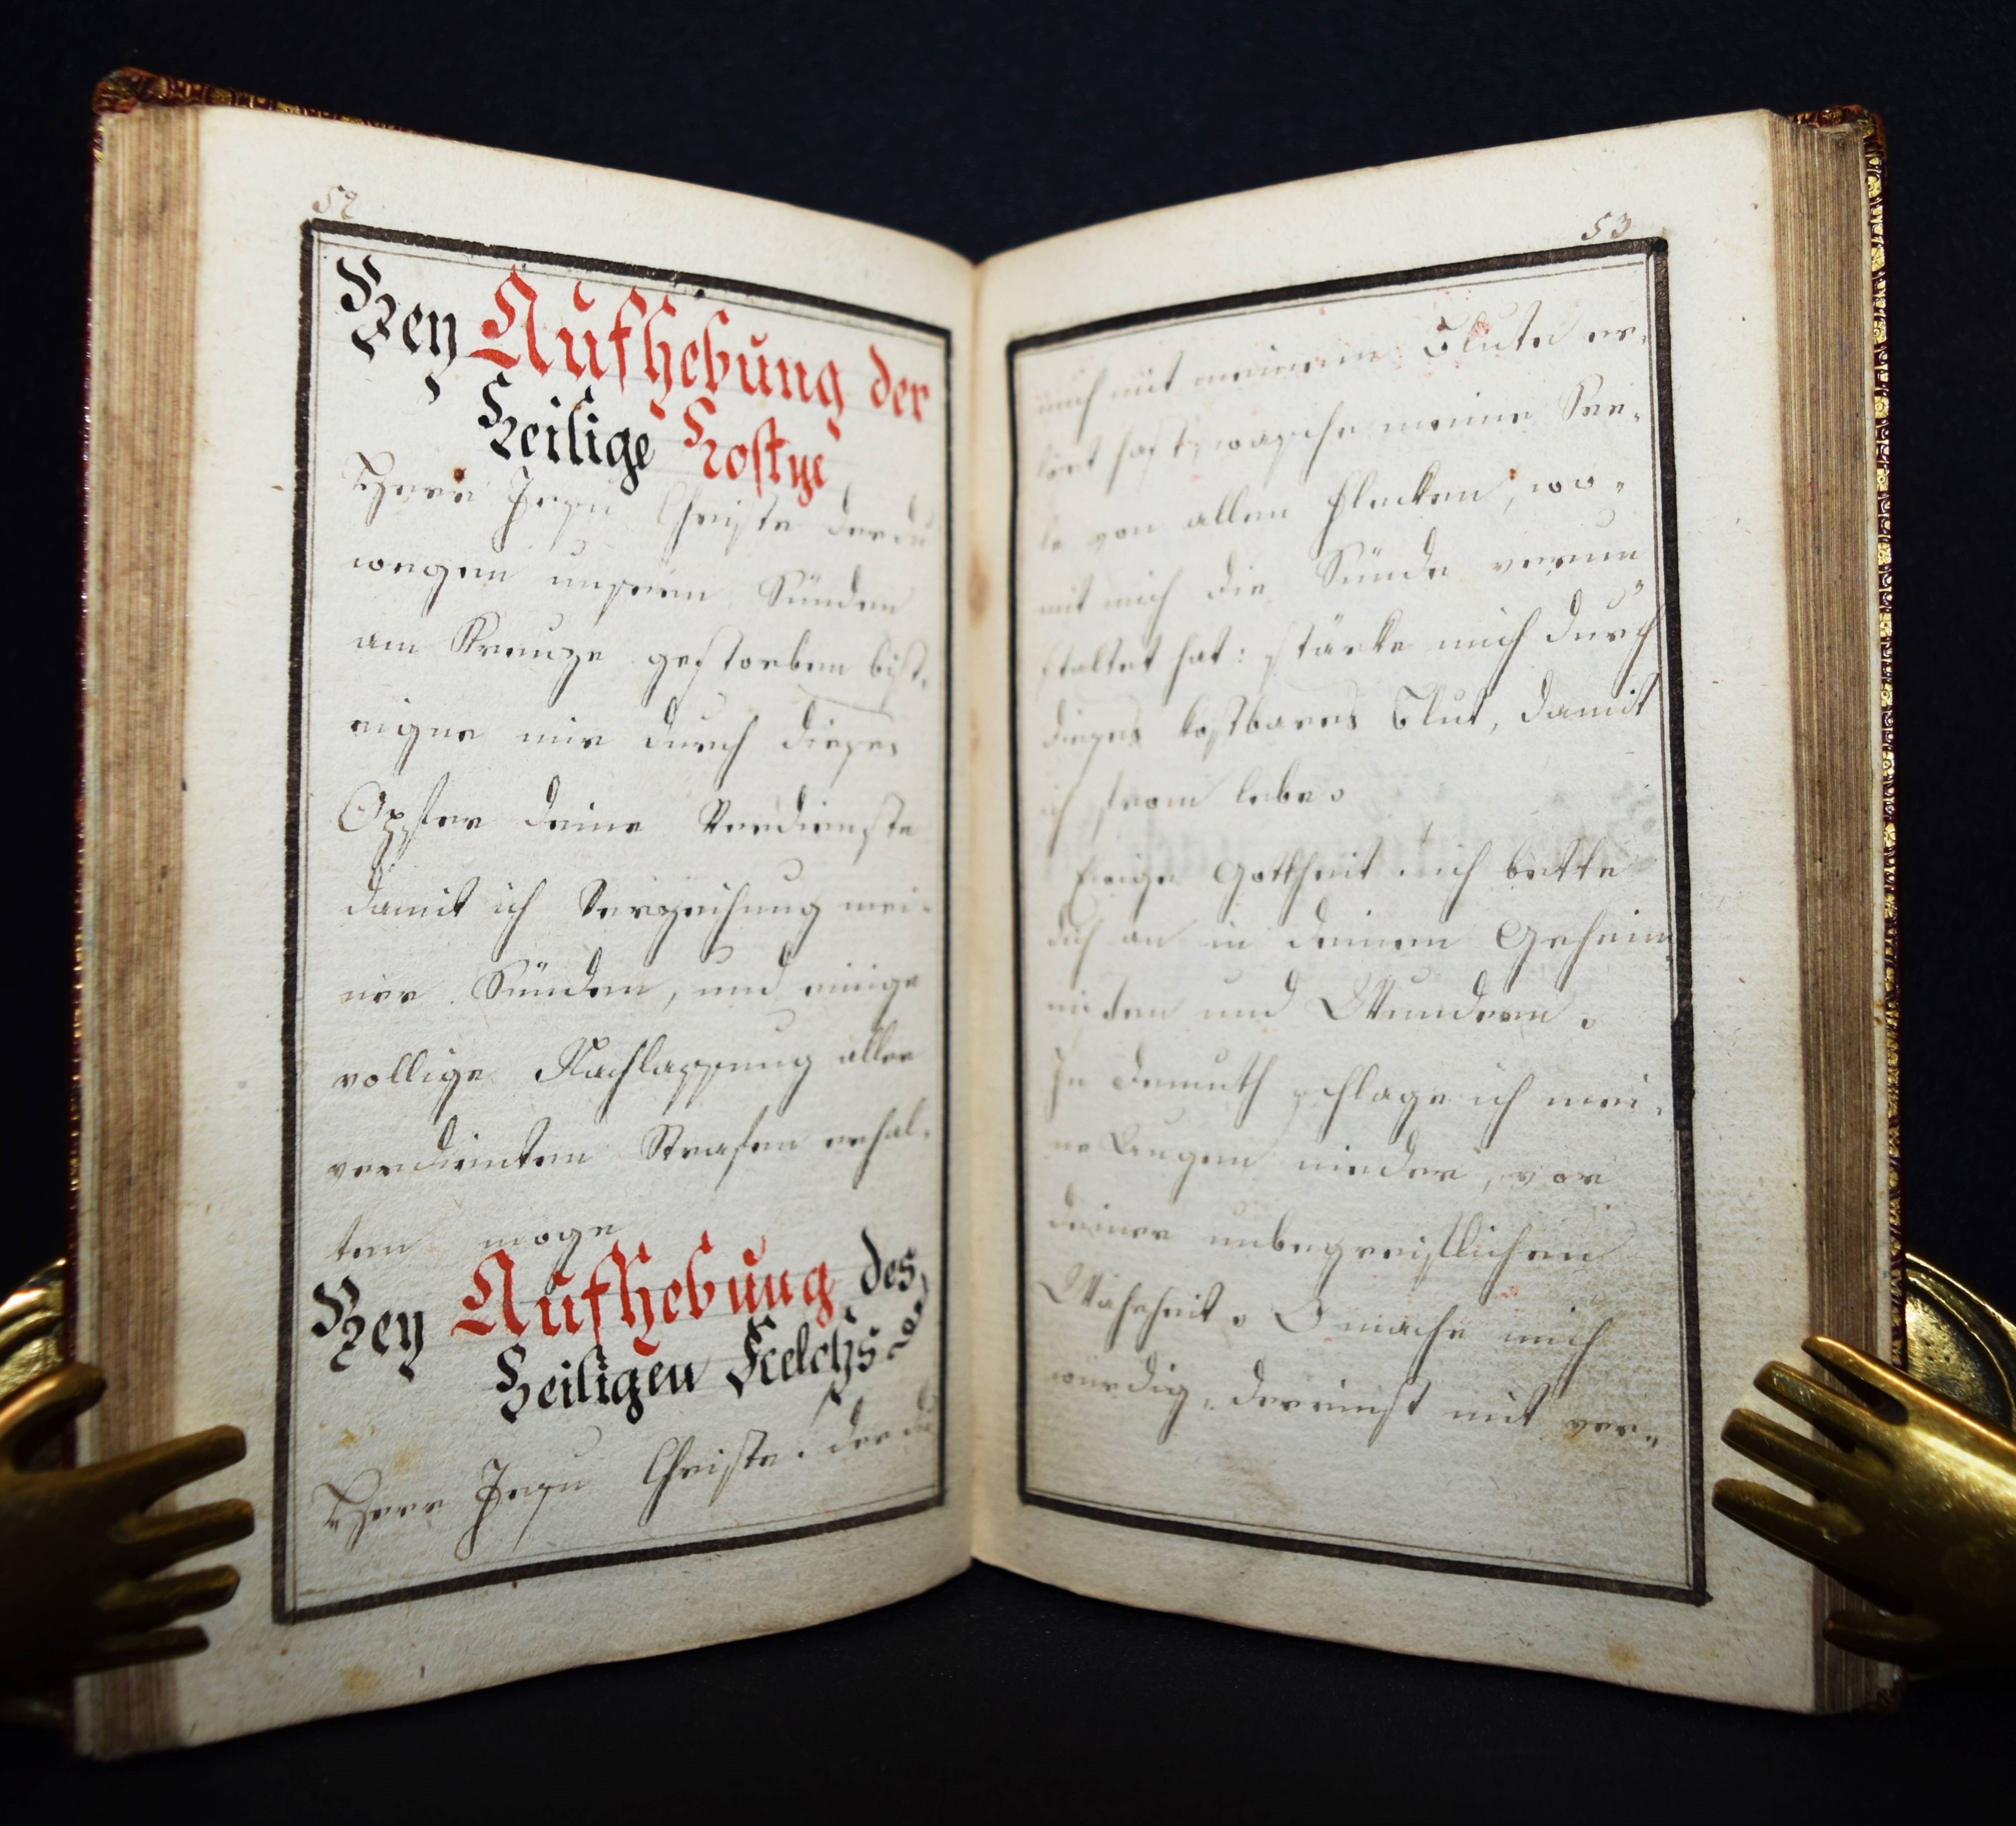 52
Bey Aufhebung der
Heilige Hostye
Herr Jesu Christe der du
wegen unsern Sünden
am Kreuze gestorben bist,
eigne mir durch dieses
Opfer deine Verdienste
damit ich Verzeihung mei-
ner Sünden, und einige
vollige Nachlassung aller
verdienten Strafen erhal-
ten moge
Bey Aufhebung des
Heiligen Kelchs
Herr Jesu Christe. der du
53
mich mit meinem Blute er-
löst hast, wasche meine See-
le von allen Flecken, wo-
mit mich die Sünde verun
staltet hat: stärke mich durch
dieses kostbares Blut, damit
ich from lebe.
Ewige Gottheit. ich bette
dich an in deinem Geheim
nisen und Wundern.
In demuth schlage ich mei-
ne Augen nieder, vor
deiner unbegreiflichen
Wahrheit. O mache mich
würdig, dereinst mit ver-